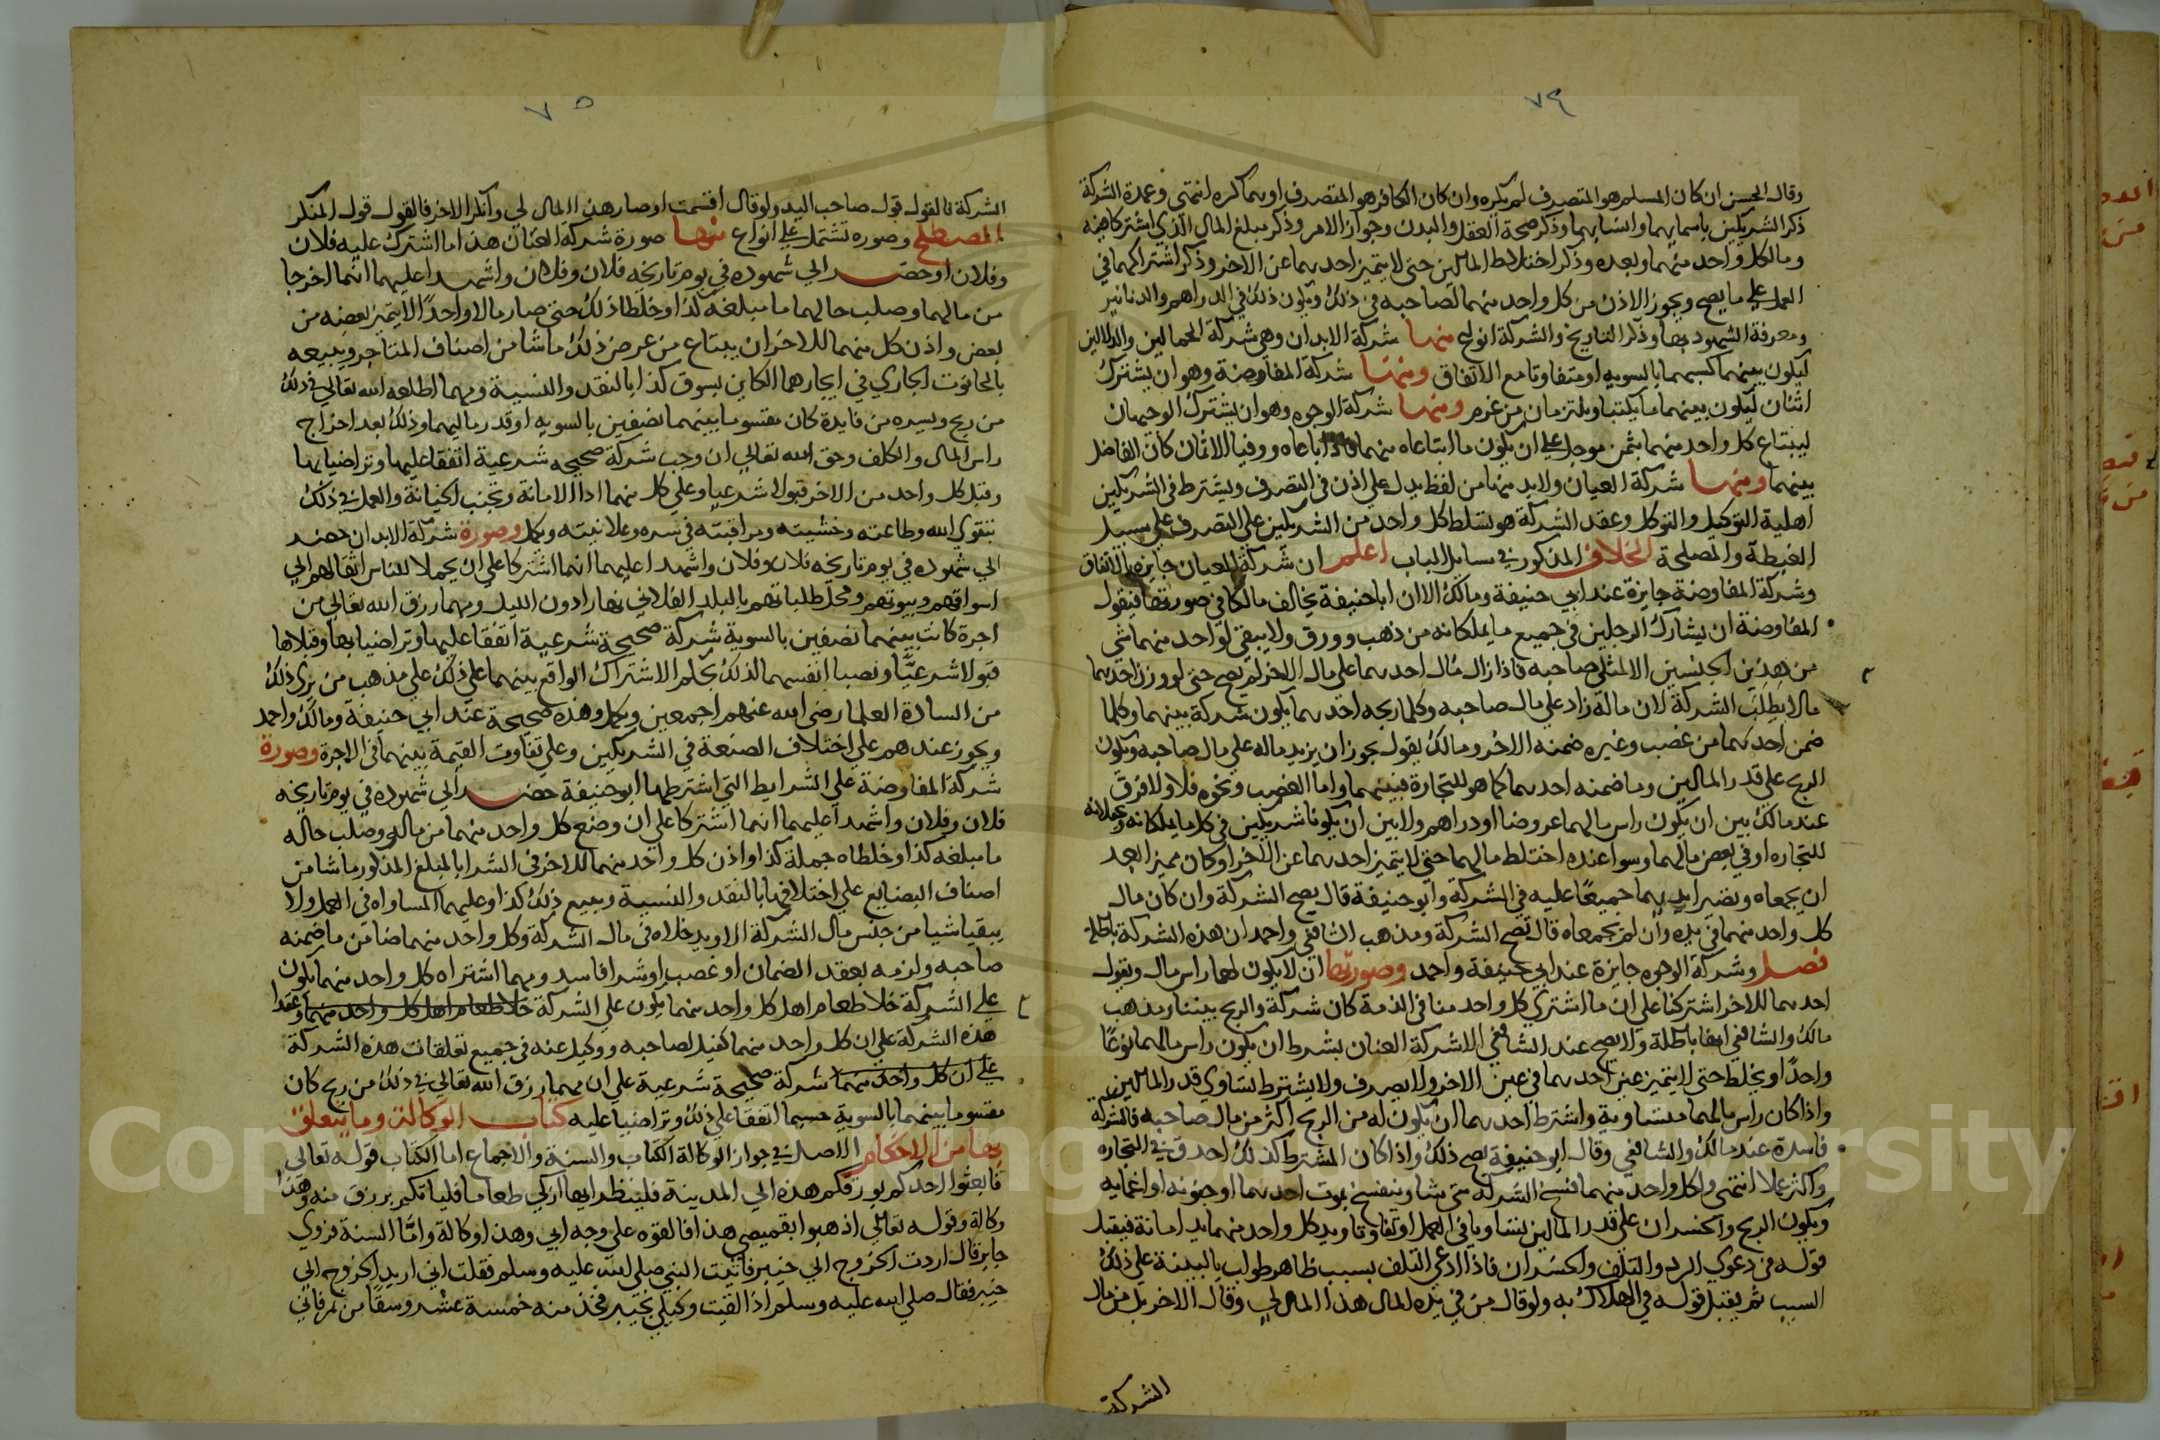 ٧٤
وقال الحسن ان كان المسلم هو المتصرف لم يكره وان كان الكافر هو المتصرف او بهما كره انتهى وعمدة الشركة
ذكر الشريكين باسمايهما وانسابهما وذكر صحة العقل والبدن وجواز الامر وذكر مبلغ المال الذي اشتركا فيه
وما لكل واحد منهما وبعده وذكر اختلاط المالين حتى لا يتميز احدهما عن الاخر وذكر اشتراكهما في
العمل على ما يصح ويجوز الاذن من كل واحد منهما لصاحبه في ذلك ويكون ذلك في الدراهم والدنانير
ومعرفة الشهود بهما وذكر التاريخ والشركة انواع منها شركة الابدان وهي شركة الحمالين والدلالين
ليكون بينهما كسبهما بالسويه او متفاوتا مع الاتفاق ومنها شركة المفاوضة وهو ان يشترك
اثنان ليكون بينهما ما يكتسبا ويلتزمان من غرم ومنها شركة الوجوه وهو ان يشترك الوجيهان
ليبتاع كل واحد منهما بثمن موجل على ان يكون ما ابتاعاه منهما فاذا باعاه ووفيا الاثمان كان الفاضل
بينهما ومنها شركة العيان ولابد منها من لفظ يدل على اذن في التصرف ويشترط في الشريكين
اهلية التوكيل والتوكل وعقد الشركة هو تسلط كل واحد من الشريكين على التصرف على سبيل
الغبطة والمصلحة الخلاف المذكور في مسايل الباب اعلم ان شركة العيان جايزة بالاتفاق
وشركة المفاوضة جايزة عند ابي حنيفة ومالك الا ان ابا حنيفة يخالف مالكا في صورتها فيقول
المفاوضة ان يشارك الرجلين في جميع ما يملكانه من ذهب وورق ولا يبقي لواحد منهما شي
من هذين الجنسين الا لمثل صاحبه فاذا زال مال احدهما على مال الاخر لم يصح حتى لو ورث احدهما
مالا بطلت الشركة لان ماله زاد على مال صاحبه وكلما ربحه احدهما يكون شركة بينهما وكلما
ضمن احدهما من غصب وغيره ضمنه الاخر ومالك يقول يجوز ان يزيد ماله على مال صاحبه ويكون
الربح على قدر المالين وما ضمنه احدهما كما هو للتجارة فبينهما واما الغصب ونحوه فلا ولا فرق
عند مالك بين ان يكون راس مالهما عروضا او دراهم ولا بين ان يكونا شريكين في كل ما يملكانه ويجعلانه
للتجاره او في بعض مالهما وسوا عنده اختلط مالهما حتى لا يتميز احدهما عن الاخر او كان مميزا بعد
ان يجمعاه ويصير ايديهما جميعا عليه في الشركة وابو حنيفة قال يصح الشركة وان كان مال
كل واحد منهما في يده وان لم يجمعاه قال تصح الشركة ومذهب الشافعي واحمد ان هذه الشركة باطلة
فصل وشركة الوجوه جايزة عند ابي حنيفة واحمد وصورتها ان لا يكون لهما راس مال ويقول
احدهما للاخر اشتركنا على ان ما اشتري كل واحد منا في الذمة كان شركة والربح بيننا ومذهب
مالك والشافعي انها باطلة ولا يصح عند الشافعي الا شركة العنان بشرط ان يكون راس مالهما نوعا
واحدا ويخلط حتى لا يتميز عين احدهما في عين الاخر ولا يصرف ولا يشترط تساوي قدر المالين
واذا كان راس مالهما متساوية واشترط احدهما ان يكون له من الربح اكثر من مال صاحبه فالشركة
فاسدة عند مالك والشافعي وقال ابو حنيفة يصح ذلك واذا كان المشترط كذلك احدق في التجاره
واكثر عملا انتهى ولكل واحد منهما فسخ الشركة متى شا وينفسخ بموت احدهما او جنونه او اغمايه
ويكون الربح والخسران على قدر المالين تساويا في العمل او تفاوتا ويد كل واحد منهما يد امانة فيقبل
قوله في دعوى الرد والتلف والخسران فاذا ادعى التلف بسبب ظاهر طولب بالبينة على ذلك
السبب ثم يقبل قوله في الهلاك به ولو قال من في يده المال هذا المال لي وقال الاخر بل من مال
الشركة
٧٥
الشركة فالقول قول صاحب اليد ولو قال اقتسمت او صار هذا المال لي وانكر الاخر فالقول قول المنكر
المصطلح وصوره تشتمل على انواع منها صورة شركة العنان هذا ما اشترك عليه فلان
وفلان او حضر الى شهوده في يوم تاريخه فلان وفلان واشهدا عليهما انهما اخرجا
من مالهما وصلب حالهما ما مبلغه كذا وخلطا ذلك حتى صار مالا واحدا لا يتميز بعضه من
بعض واذن كل منهما للاخر ان يبتاع من عرض ذلك ما شا من اصناف المتاجر ويبيعه
بالحانوت الجاري في ايجارهما الكاين بسوق كذا بالنقد والنسية ومهما اطلعه الله تعالى في ذلك
من ربح ويسره من فايدة كان مقسوما بينهما نصفين بالسويه او قدر ماليهما وذلك بعد اخراج
راس المال والكلف وحق الله تعالى ان وجب شركة صحيحه شرعية اتفقا عليها وتراضيا بها
وقبل كل واحد من الاخر قبولا شرعيا وعلى كل منهما ادا الامانة وتجنب الخيانة والعمل في ذلك
بتقوى الله وطاعته وخشيته ومراقبته في سره وعلانيته ويكمل وصورة شركة الابدان حضر
الى شهوده في يوم تاريخه فلان وفلان واشهدا عليهما انهما اشتركا على ان يحملا للناس اثقالهم الى
اسواقهم وبيوتهم ومحل طلباتهم بالبلد الفلاني نهارا دون الليل ومهما رزق الله تعالى من
اجرة كانت بينهما نصفين بالسوية شركة صحيحة شرعية اتفقا عليها وتراضيا بها وقبلاها
قبولا شرعيا ونصبا انفسهما لذلك بحكم الاشتراك الواقع بينهما على ذلك على مذهب من يرى ذلك
من السادة العلما رضى الله عنهم اجمعين ويكمل وهذه صحيحة عند ابي حنيفة ومالك واحمد
ويجوز عندهم على اختلاف الصنعة في الشريكين وعلى تفاوت القيمة بينهما في الاجرة وصورة
شركة المفاوضة على الشرايط التي اشترطها ابو حنيفة حضر الى شهوده في يوم تاريخه
فلان وفلان واشهدا عليهما انهما اشتركا على ان وضع كل واحد منهما من ماله وصلب حاله
ما مبلغه كذا وخلطاه جملة كذا واذن كل واحد منهما للاخر في الشرا بالمبلغ المذكور ما شا من
اصناف البضايع على اختلافها بالنقد والنسية ويبيع ذلك كذا وعليهما المساواه في العمل ولا
يبقيا شيا من جنس مال الشركة الا ويدخلاه في مال الشركة وكل واحد منهما ضامن ما ضمنه
صاحبه ولزمه بعقد الضمان او غصب او شرا فاسد ومهما اشتراه كل واحد منهما يكون
على الشركة خلا طعام اهل كل واحد منهما يكون على الشركة خلا طعام اهل كل واحد منهما وعقدا
هذه الشركة على ان كل واحد منهما كفيل لصاحبه ووكيل عنه في جميع تعلقات هذه الشركة
على ان كل واحد منهما شركة صحيحة شرعية على ان مهما رزق الله تعالى في ذلك من ربح كان
مقسوما بينهما بالسوية حسبما اتفقا على ذلك وتراضيا عليه كتاب الوكالة وما يتعلق
بها من الاحكام الاصل في جواز الوكالة الكتاب والسنة والاجماع اما الكتاب قوله تعالى
فابعثوا احدكم بورقكم هذه الى المدينة فلينظر ايها ازكى طعاما فلياتكم برزق منه وهذا
وكالة وقوله تعالى اذهبوا بقميصي هذا فالقوه على وجه ابي وهذا وكالة واما السنة فروى
جابر قال اردت الخروج الى خيبر فاتيت النبي صلى الله عليه وسلم فقلت اني اريد الخروج الى
خيبر فقال صلى الله عليه وسلم اذا لقيت وكيلي بخيبر فخذ منه خمسة عشر وسقا من تمر فان